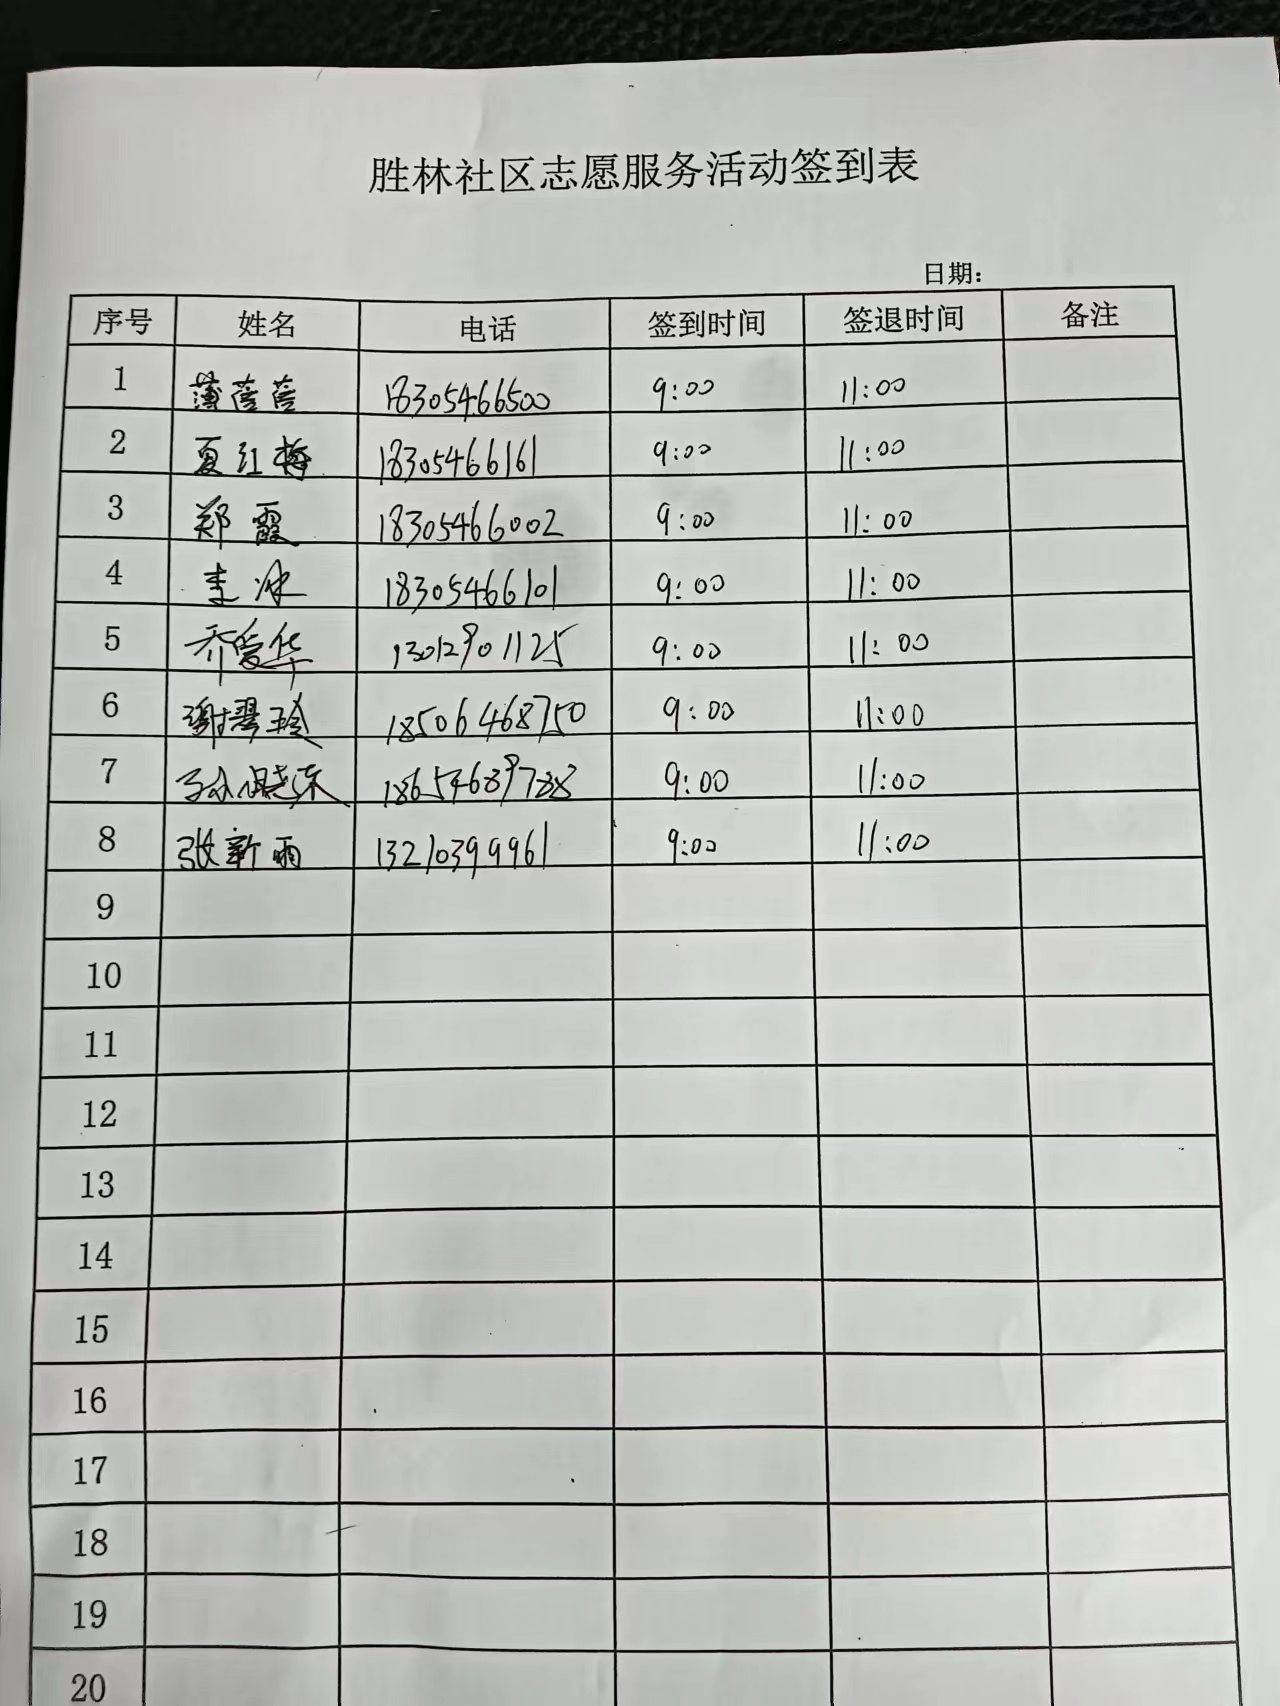 胜林社区志愿服务活动签到表
日期：
序号 姓名 电话 签到时间 签退时间 备注
1 薄蓓蓓 18305466500 9:00 11:00
2 夏红梅 18305466161 9:00 11:00
3 郑霞 18305466002 9:00 11:00
4 李冰 18305466101 9:00 11:00
5 乔爱华 13012901125 9:00 11:00
6 谢翠玲 18506468750 9:00 11:00
7 孙晓东 18654689788 9:00 11:00
8 张新雨 13210399961 9:00 11:00
9
10
11
12
13
14
15
16
17
18
19
20